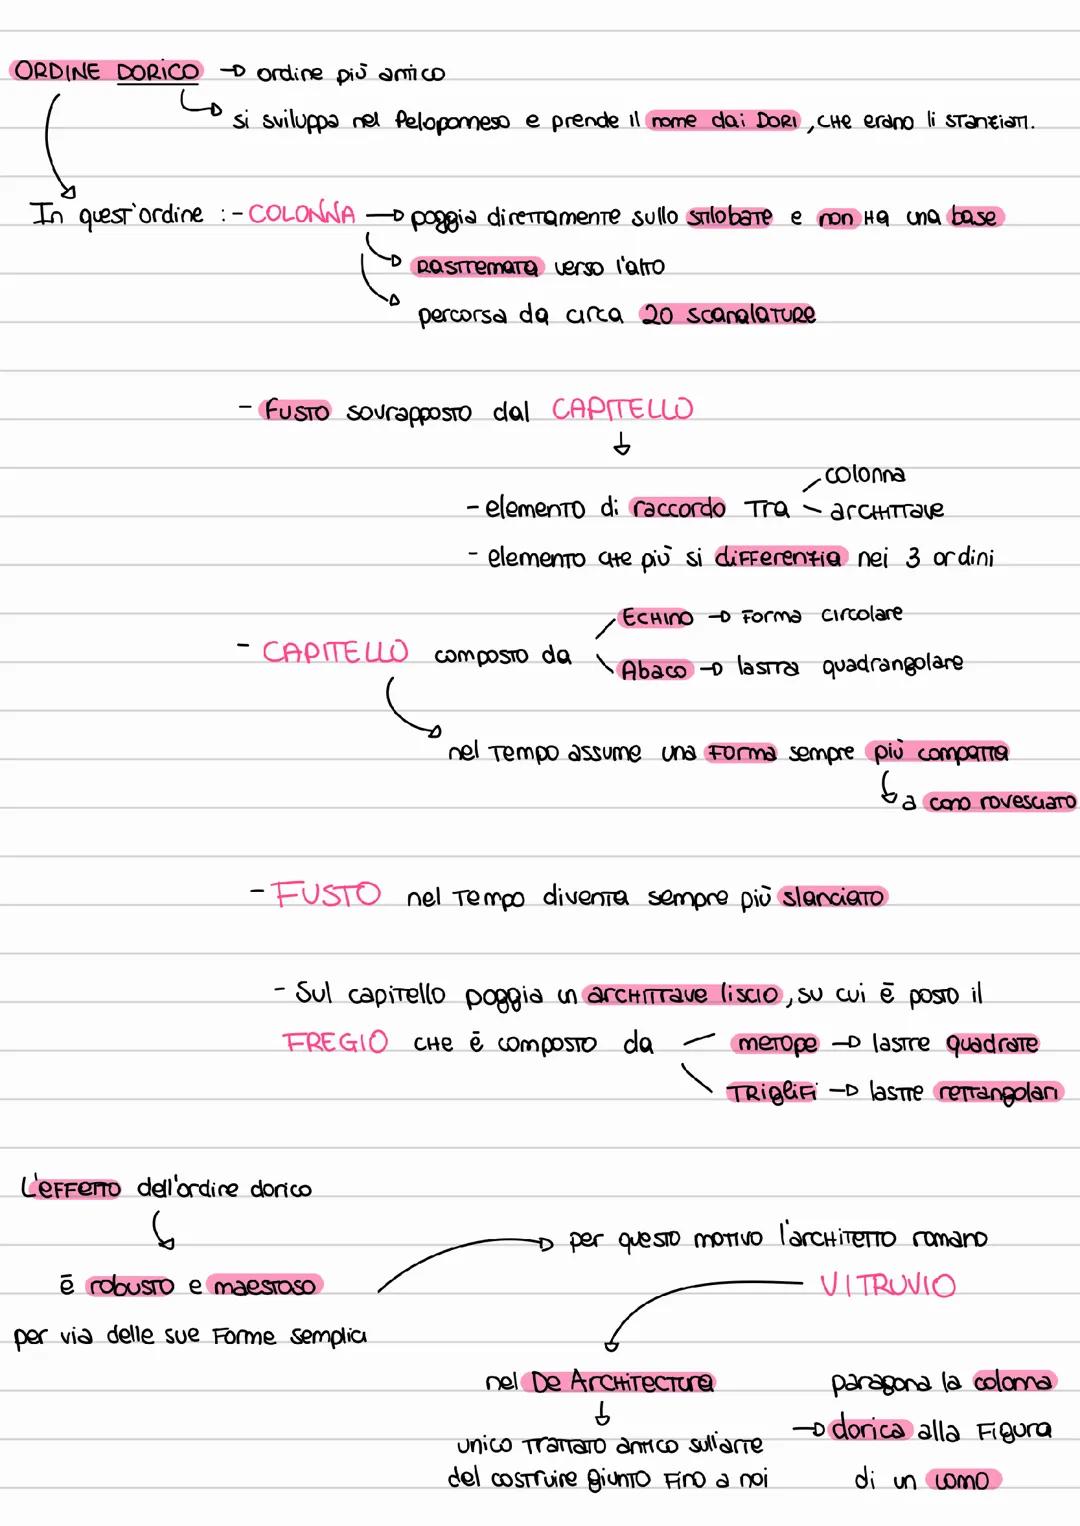 ORDINE DORICO → ordine più antico
si sviluppa nel Peloponneso e prende il nome dai DORI, che erano lì stanziati.
In quest'ordine : - COLONNA → poggia direttamente sullo stilobate e non ha una base
rastremata verso l'alto
percorsa da circa 20 scanalature
- Fusto sovrapposto dal CAPITELLO
colonna
- elemento di raccordo tra architrave
- elemento che più si differenzia nei 3 ordini
Echino → forma circolare
- CAPITELLO composto da
Abaco → lastra quadrangolare
nel tempo assume una forma sempre più compatta
a cono rovesciato
- FUSTO nel tempo diventa sempre più slanciato
- Sul capitello poggia un architrave liscio, su cui è posto il
FREGIO che è composto da metope → lastre quadrate
triglifi → lastre rettangolari
L'effetto dell'ordine dorico
per questo motivo l'architetto romano
è robusto e maestoso
VITRUVIO
per via delle sue forme semplici
nel De Architectura
paragona la colonna
→ dorica alla figura
di un uomo
unico trattato antico sull'arte
del costruire giunto fino a noi